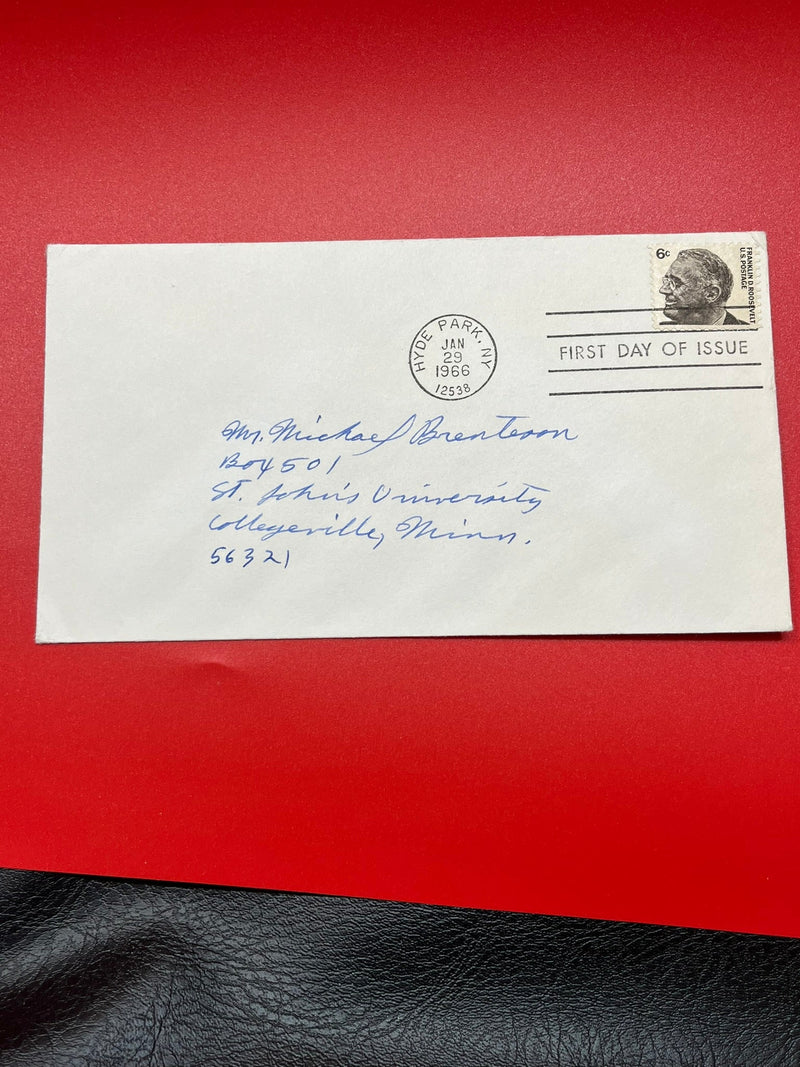 6c
FRANKLIN D. ROOSEVELT
U.S. POSTAGE
HYDE PARK, NY
JAN
29
1966
12538
FIRST DAY OF ISSUE
Mr. Michael Brenteson
Box 501
St. John's University
Collegeville, Minn.
56321